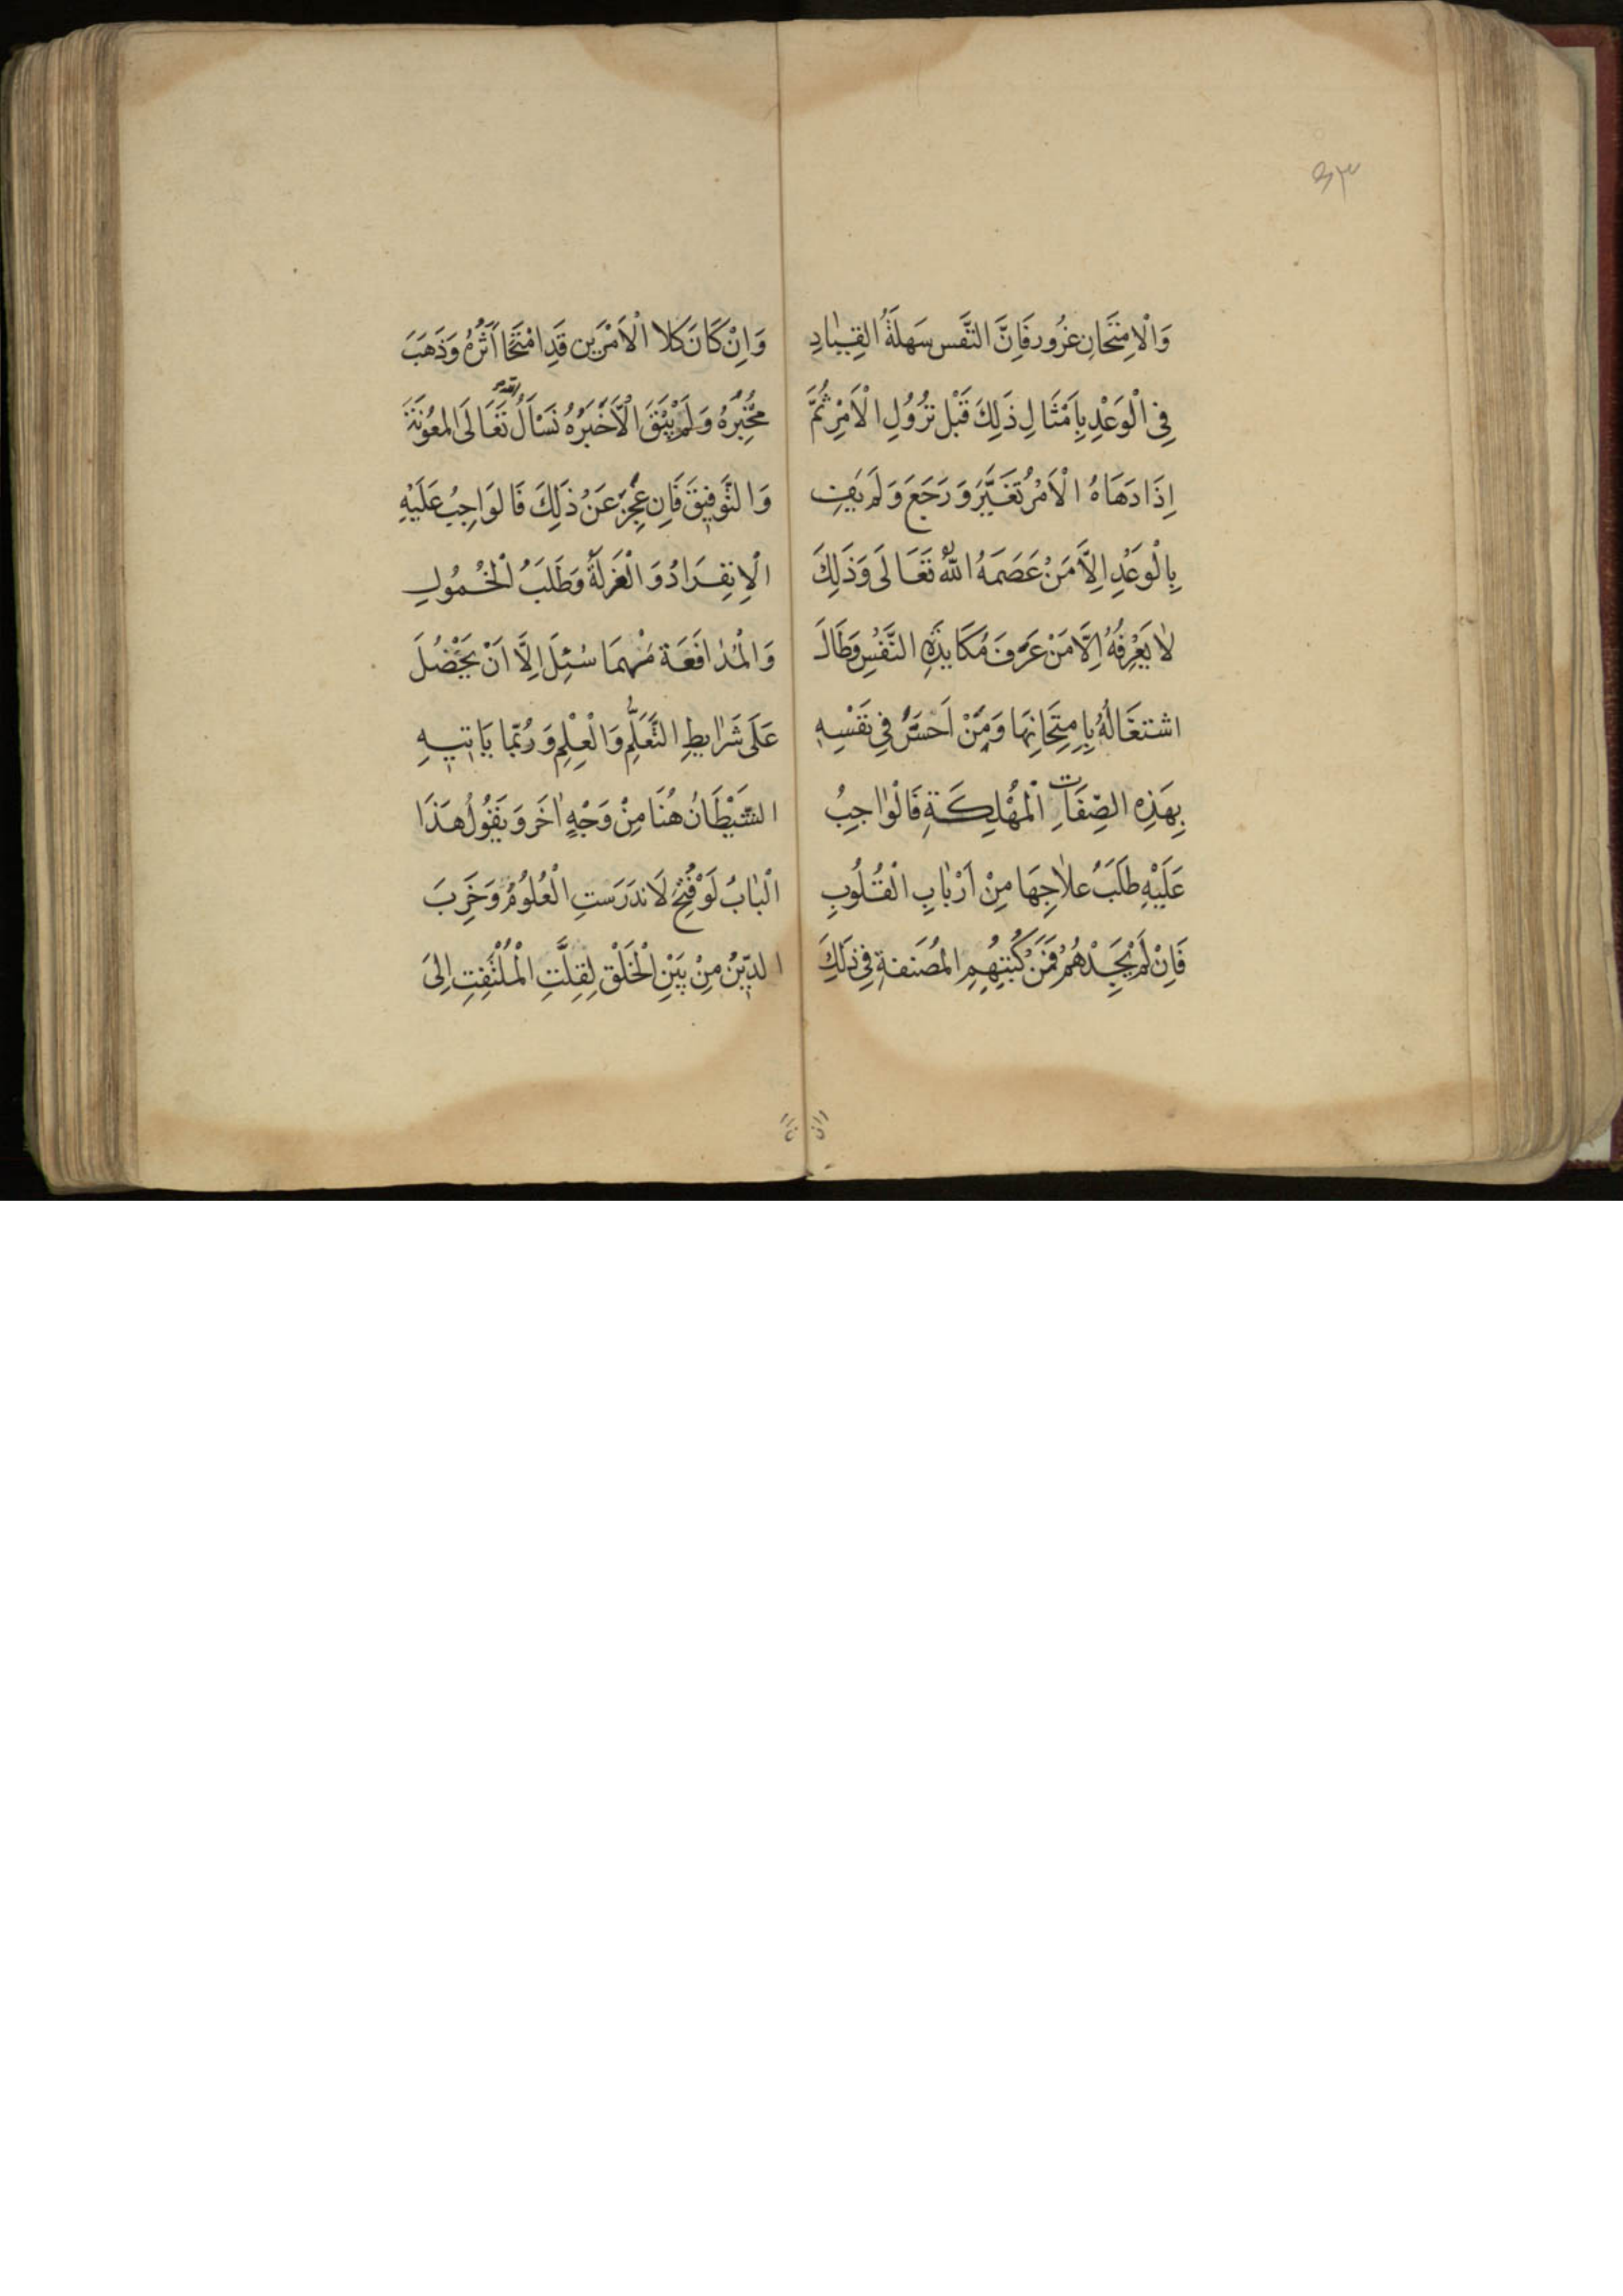 ٤٣
وَالْاِمْتِحَانِ غُرُور فَاِنَّ النَّفَس سَهلَةُ القِيٰادِ
فِي الْوَعْدِ بِاَمْثَالِ ذَلِكَ قَبْلَ نُزُولِ الْاَمْرِ ثُمَّ
اِذَا دَهَاهُ الْاَمْرُ تَغَيَّرَ وَرَجَعَ وَلَم يَفِ
بِالْوَعْدِ اِلَّا مَنْ عَصَمَهُ اللّٰهُ تَعَالَى وَذَلِكَ
لٰا يَعْرِفُهُ اِلَّا مَنْ عَرَفَ مُكَايَدَةِ النَّفْسِ وَطَالَ
اشتغَالُهُ بِاِمتِحَانِهَا وَمَنْ اَحَسَّ فِي نَفْسِهِ
بِهَذِهِ الصِّفَاتِ الْمُهْلِكَةِ فَالْوٰاجِبُ
عَلَيْهِ طَلَبَ علٰاجِهَا مِنْ اَرْبٰابِ الْقُلُوبِ
فَاِنْ لَمْ يَجِدْهُمْ فَمَنْ كُتُبِهِمِ المُصَنفةِ فِي ذَلِكَ
وَاِنْ كَانَ كلا الْاَمْرَين قَدِ امْتَحَا اَثَرُهُ وَذَهَبَ
مُخْبِرَهُ وَلَمْ يَبْقَ اِلَّا خَبَرُهُ نَسْاَلُ الله تَعَالَى المعُونَةَ
وَالتَّوفِيقَ فَاِن عَجِزَ عَنْ ذَلِكَ فَالوَاجِبُ عَلَيْهِ
الْاِنفِرَادُ وَالْعَزلَةُ وَطَلَبُ الْخُمُولِ
وَالْمُدٰافَعَة مَهْمَا سُئِلَ اِلَّا اَنْ يَحْصُلَ
عَلَى شَرٰايطِ التَّعَلُّمِ وَالْعِلْمِ وَرُبَّمٰا يَاتيهِ
الشَّيْطَانُ هُنَا مِنْ وَجْهٍ اٰخَرَ وَيَقُولُ هَذَا
الْبٰابُ لَوْ فُتِحَ لَاندَرَسَتِ الْعُلُومُ وَخَرِبَ
الدّينُ مِنْ بَيْنِ الْخَلْقِ لِقِلَّتِ الْمُلْتَفِتِ اِلَى